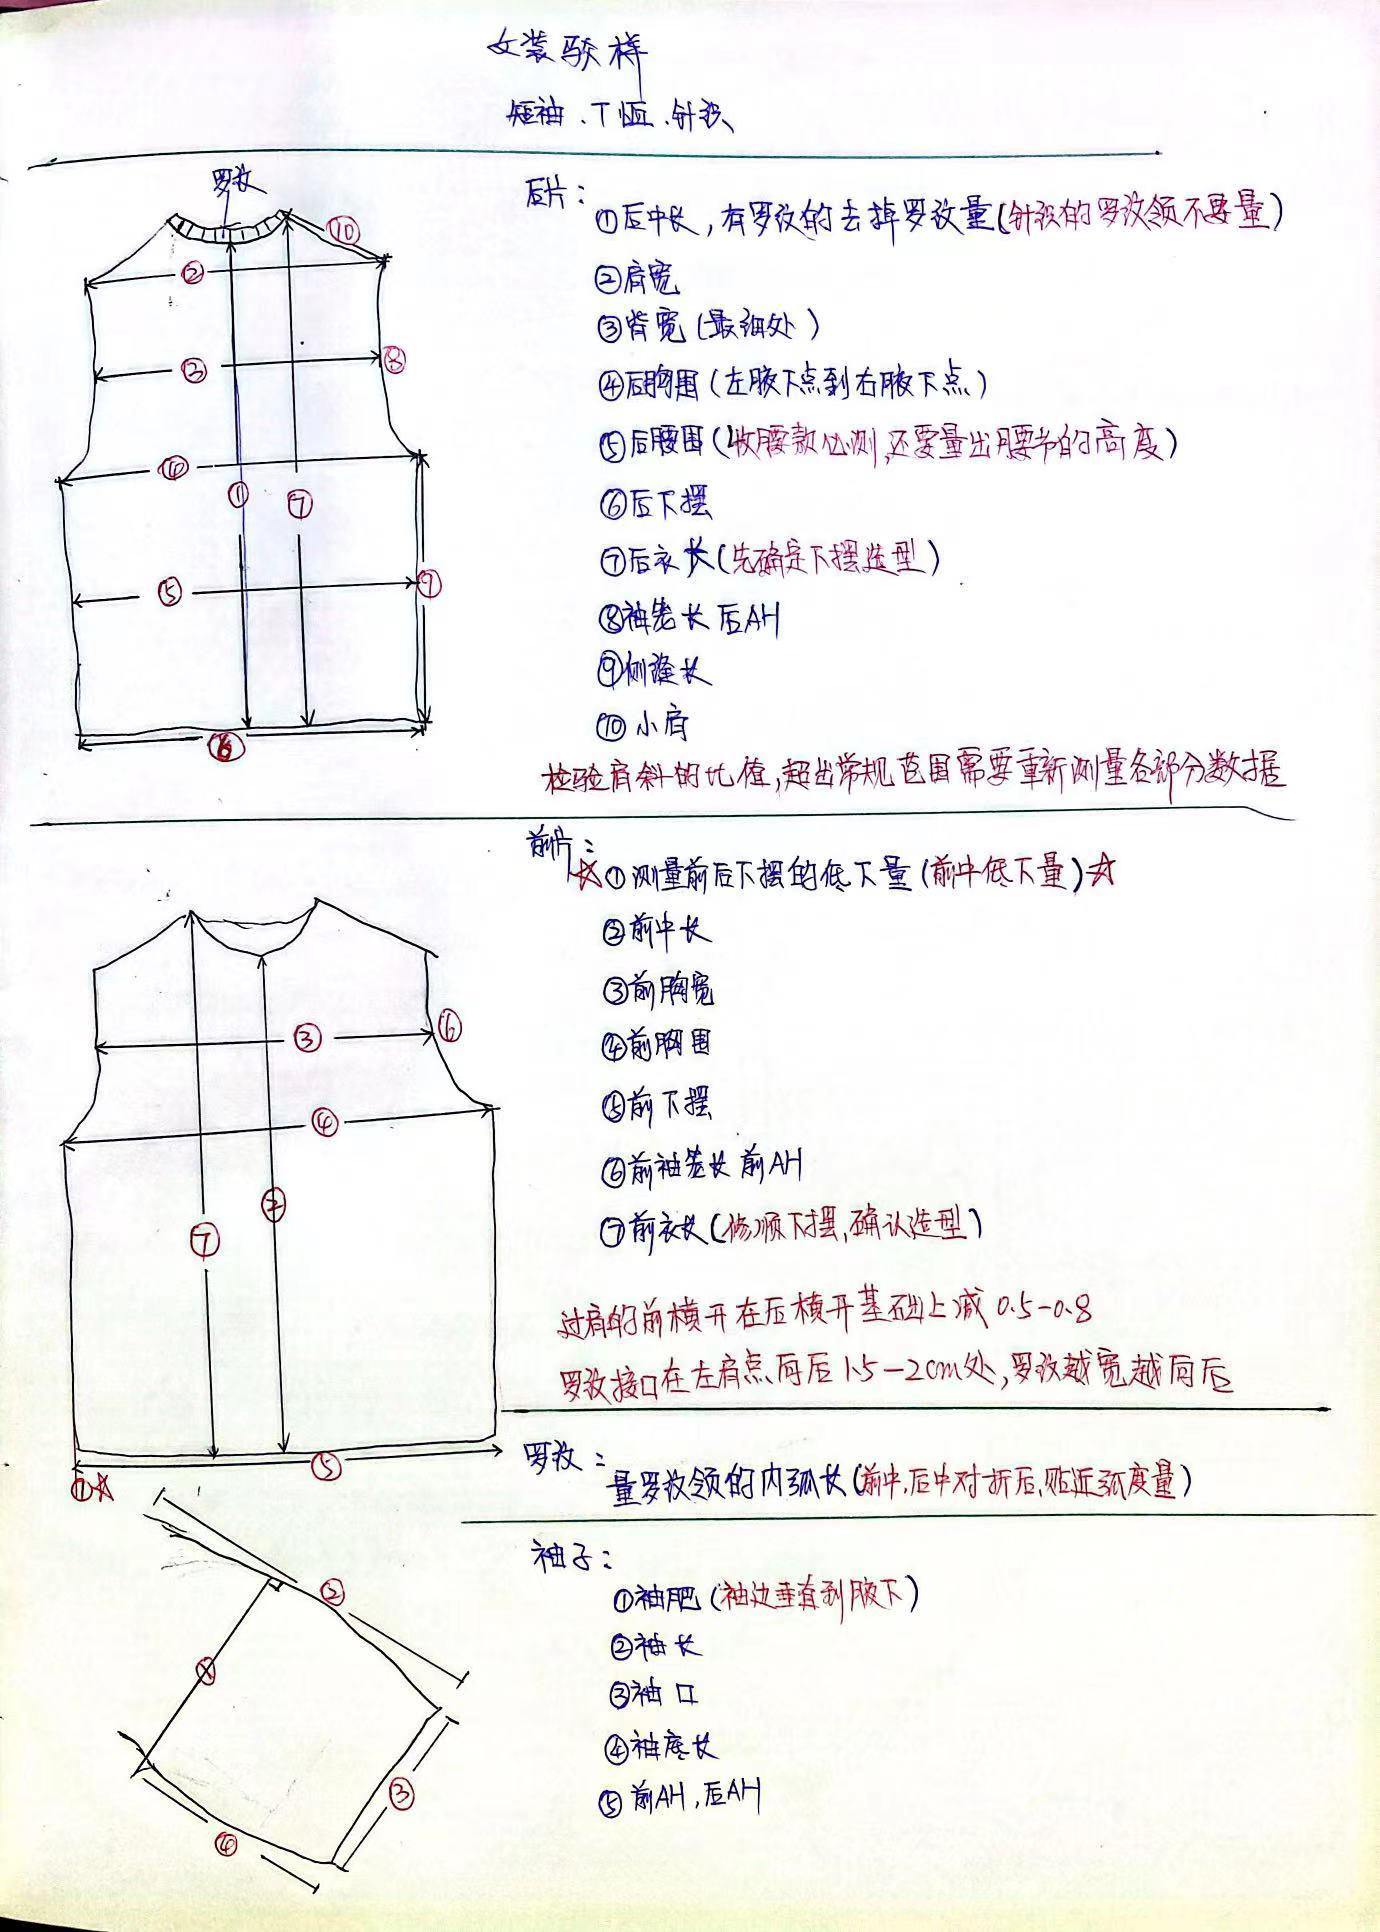 女装驳样
短袖.T恤.针织
罗纹
⑩
②
③
⑧
④
①
⑦
⑤
⑨
⑥
后片:
①后中长,有罗纹的去掉罗纹量(针织的罗纹领不要量)
②肩宽
③背宽(最细处)
④后胸围(左腋下点到右腋下点)
⑤后腰围(收腰款必测,还要量出腰节的高度)
⑥后下摆
⑦后衣长(先确定下摆造型)
⑧袖笼长 后AH
⑨侧缝长
⑩小肩
检验肩斜的比值,超出常规范围需要重新测量各部分数据
前片:
☆①测量前后下摆的低下量(前中低下量)☆
②前中长
③前胸宽
④前胸围
⑤前下摆
⑥前袖笼长 前AH
⑦前衣长(修顺下摆,确认造型)
过肩的前横开在后横开基础上减0.5-0.8
罗纹接口在左肩点向后1.5-2cm处,罗纹越宽越向后
③
⑥
④
②
⑦
⑤
①☆
罗纹:
量罗纹领的内弧长(前中,后中对折后,贴近弧度量)
袖子:
①袖肥(袖边垂直到腋下)
②袖长
③袖口
④袖底长
⑤前AH,后AH
②
③
④